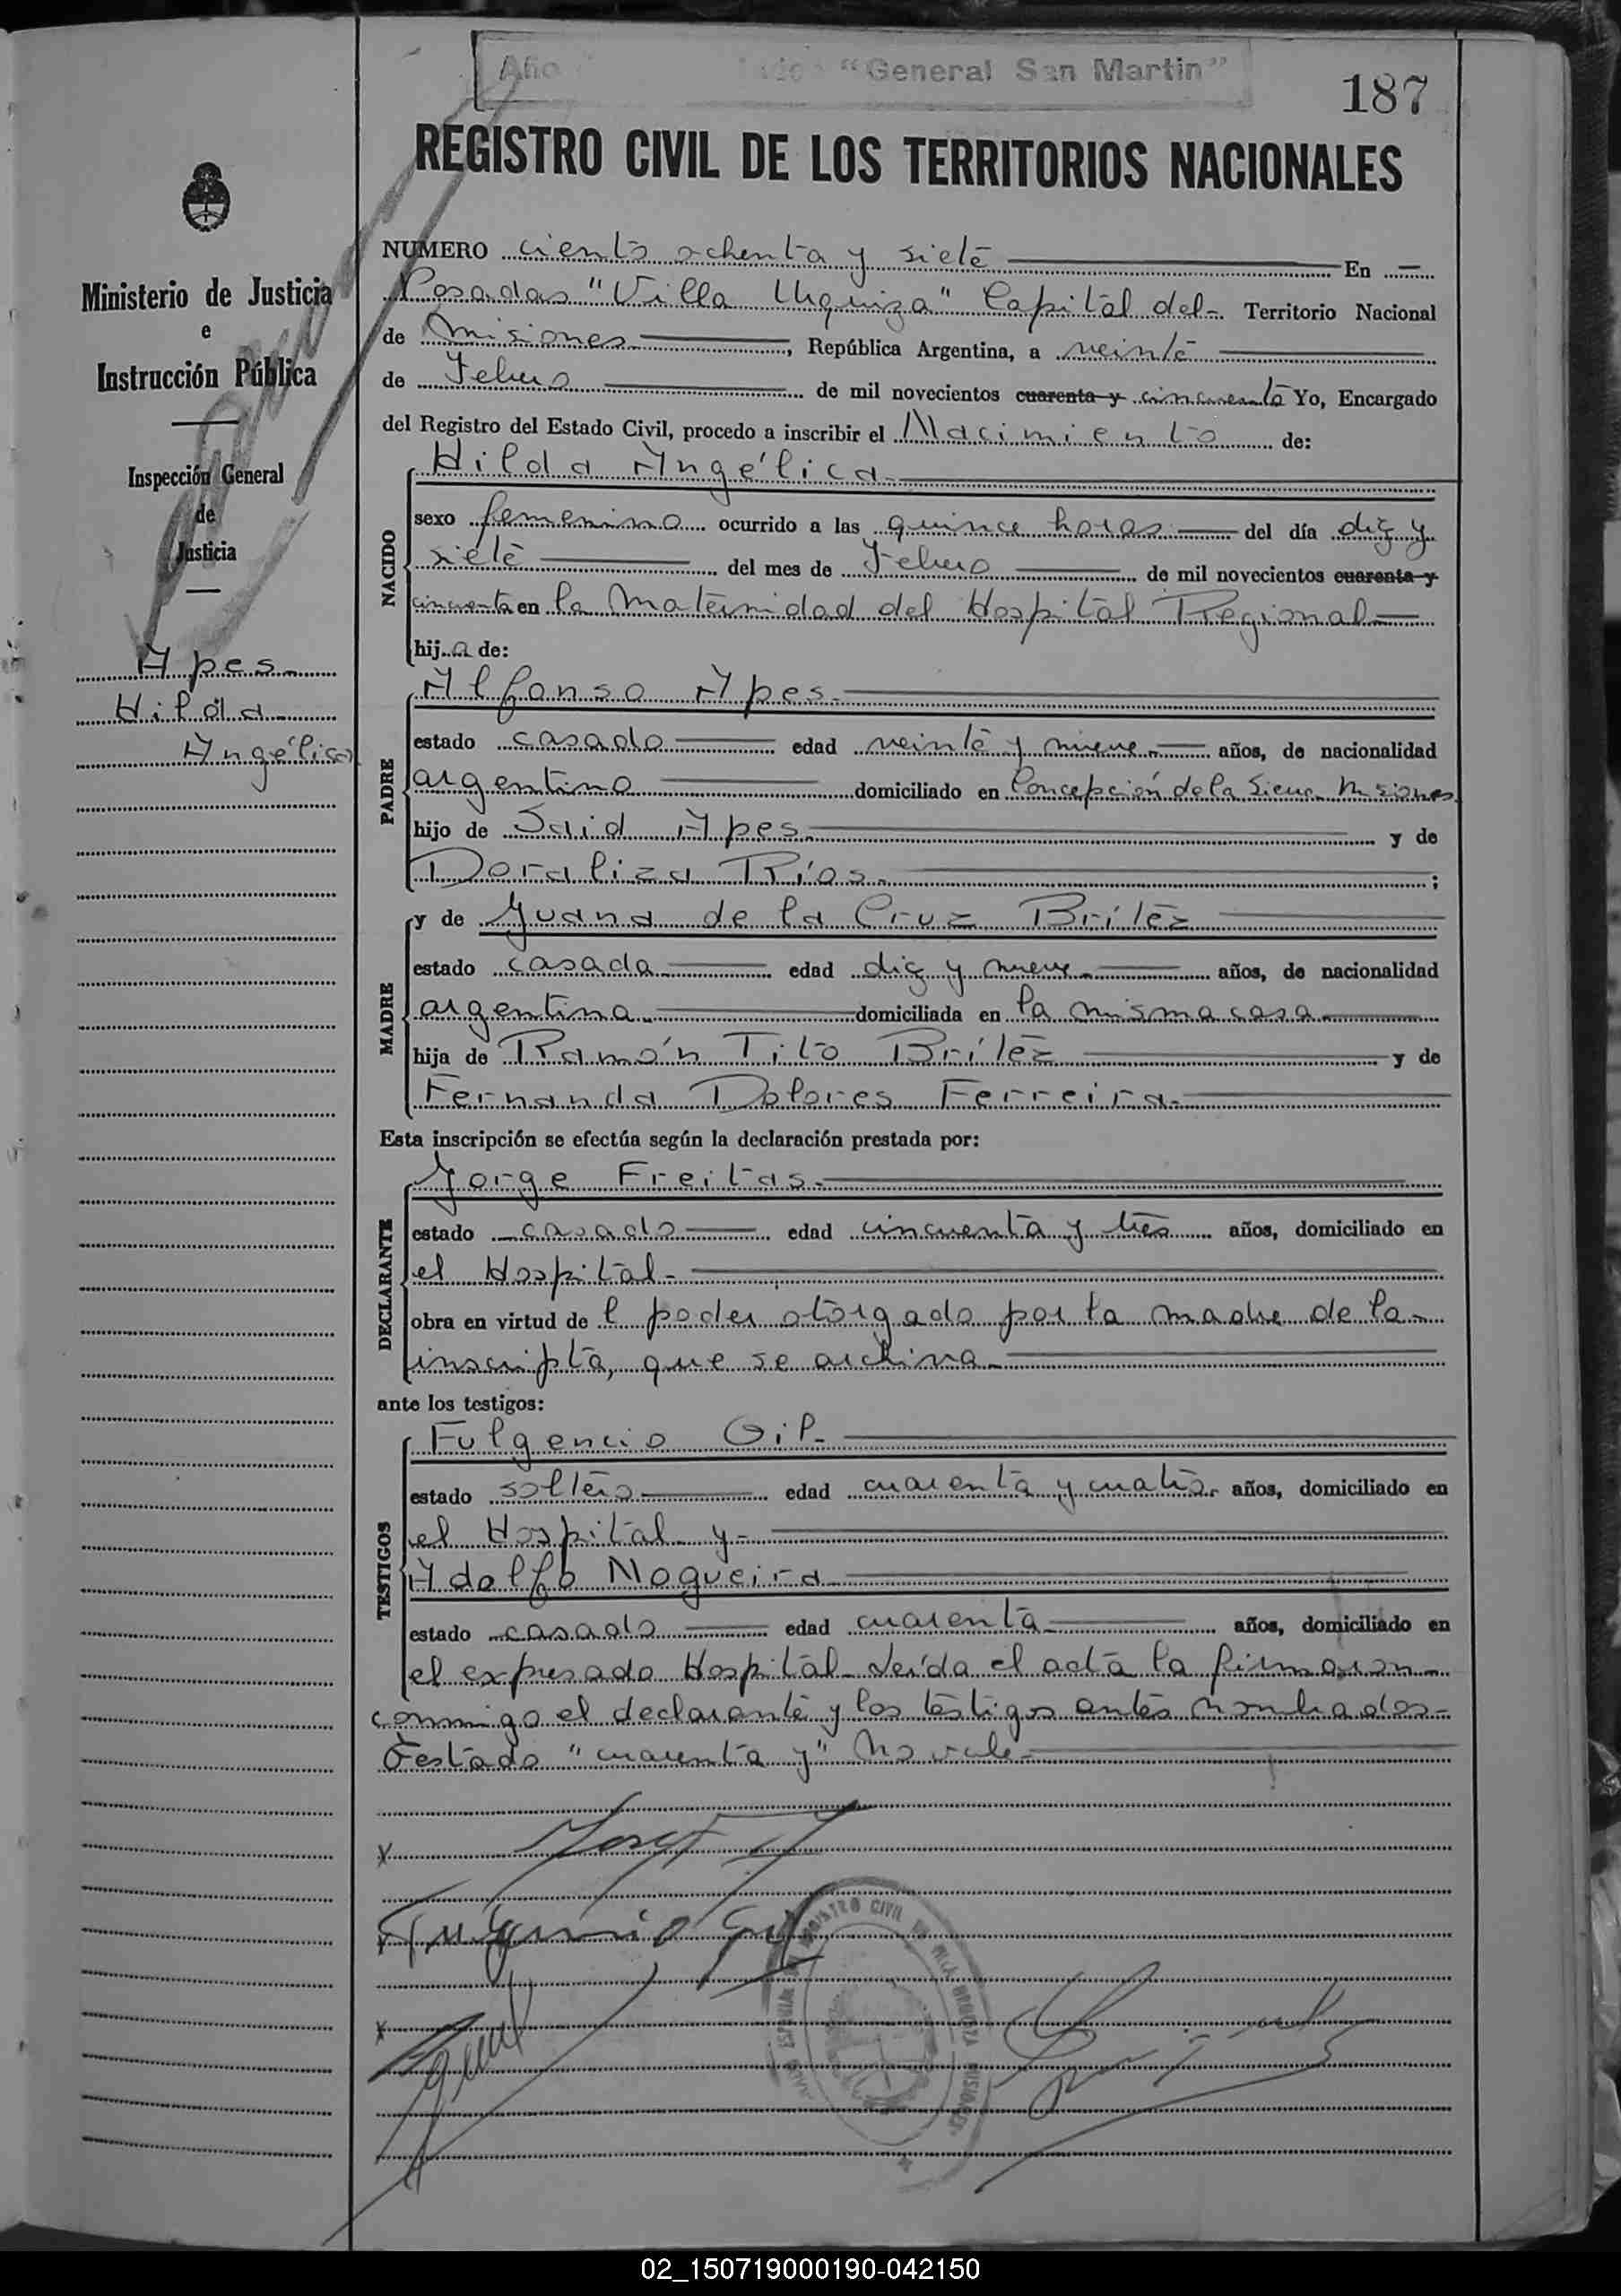 Año "General San Martin"
187
REGISTRO CIVIL DE LOS TERRITORIOS NACIONALES
Ministerio de Justicia
e
Instrucción Pública
Inspección General
de
Justicia
Apes.
Hilda
Angélica
NUMERO ciento ochenta y siete En
Posadas "Villa Urquiza" Capital del Territorio Nacional
de Misiones, República Argentina, a veinte
de Febrero de mil novecientos cuarenta y cincuenta Yo, Encargado
del Registro del Estado Civil, procedo a inscribir el Nacimiento de:
Hilda Angélica.
NACIDO
sexo femenino ocurrido a las quince horas del día diez y
siete del mes de Febrero de mil novecientos cuarenta y
cincuenta en la Maternidad del Hospital Regional
hija de:
Alfonso Apes.
PADRE
estado casado edad veinte y nueve. años, de nacionalidad
argentino domiciliado en Concepción de la Sierra Misiones
hijo de Said Apes. y de
Doraliza Ríos. ;
MADRE
y de Juana de la Cruz Brítez
estado casada. edad diez y nueve. años, de nacionalidad
argentina. domiciliada en la misma casa.
hija de Ramón Tito Brítez y de
Fernanda Dolores Ferreira.
Esta inscripción se efectúa según la declaración prestada por:
DECLARANTE
Jorge Freitas.
estado casado edad cincuenta y tres años, domiciliado en
el Hospital.
obra en virtud de l poder otorgado por la madre de la
inscripta, que se archiva.
ante los testigos:
TESTIGOS
Fulgencio Gil.
estado soltero edad cuarenta y cuatro. años, domiciliado en
el Hospital y
Adolfo Nogueira.
estado casado edad cuarenta. años, domiciliado en
el expresado Hospital. Leída el acta la firmaron
conmigo el declarante y los testigos antes nombrados.
Testado "cuarenta y" No vale.
Fulgencio Gil
REGISTRO CIVIL
02_150719000190-042150